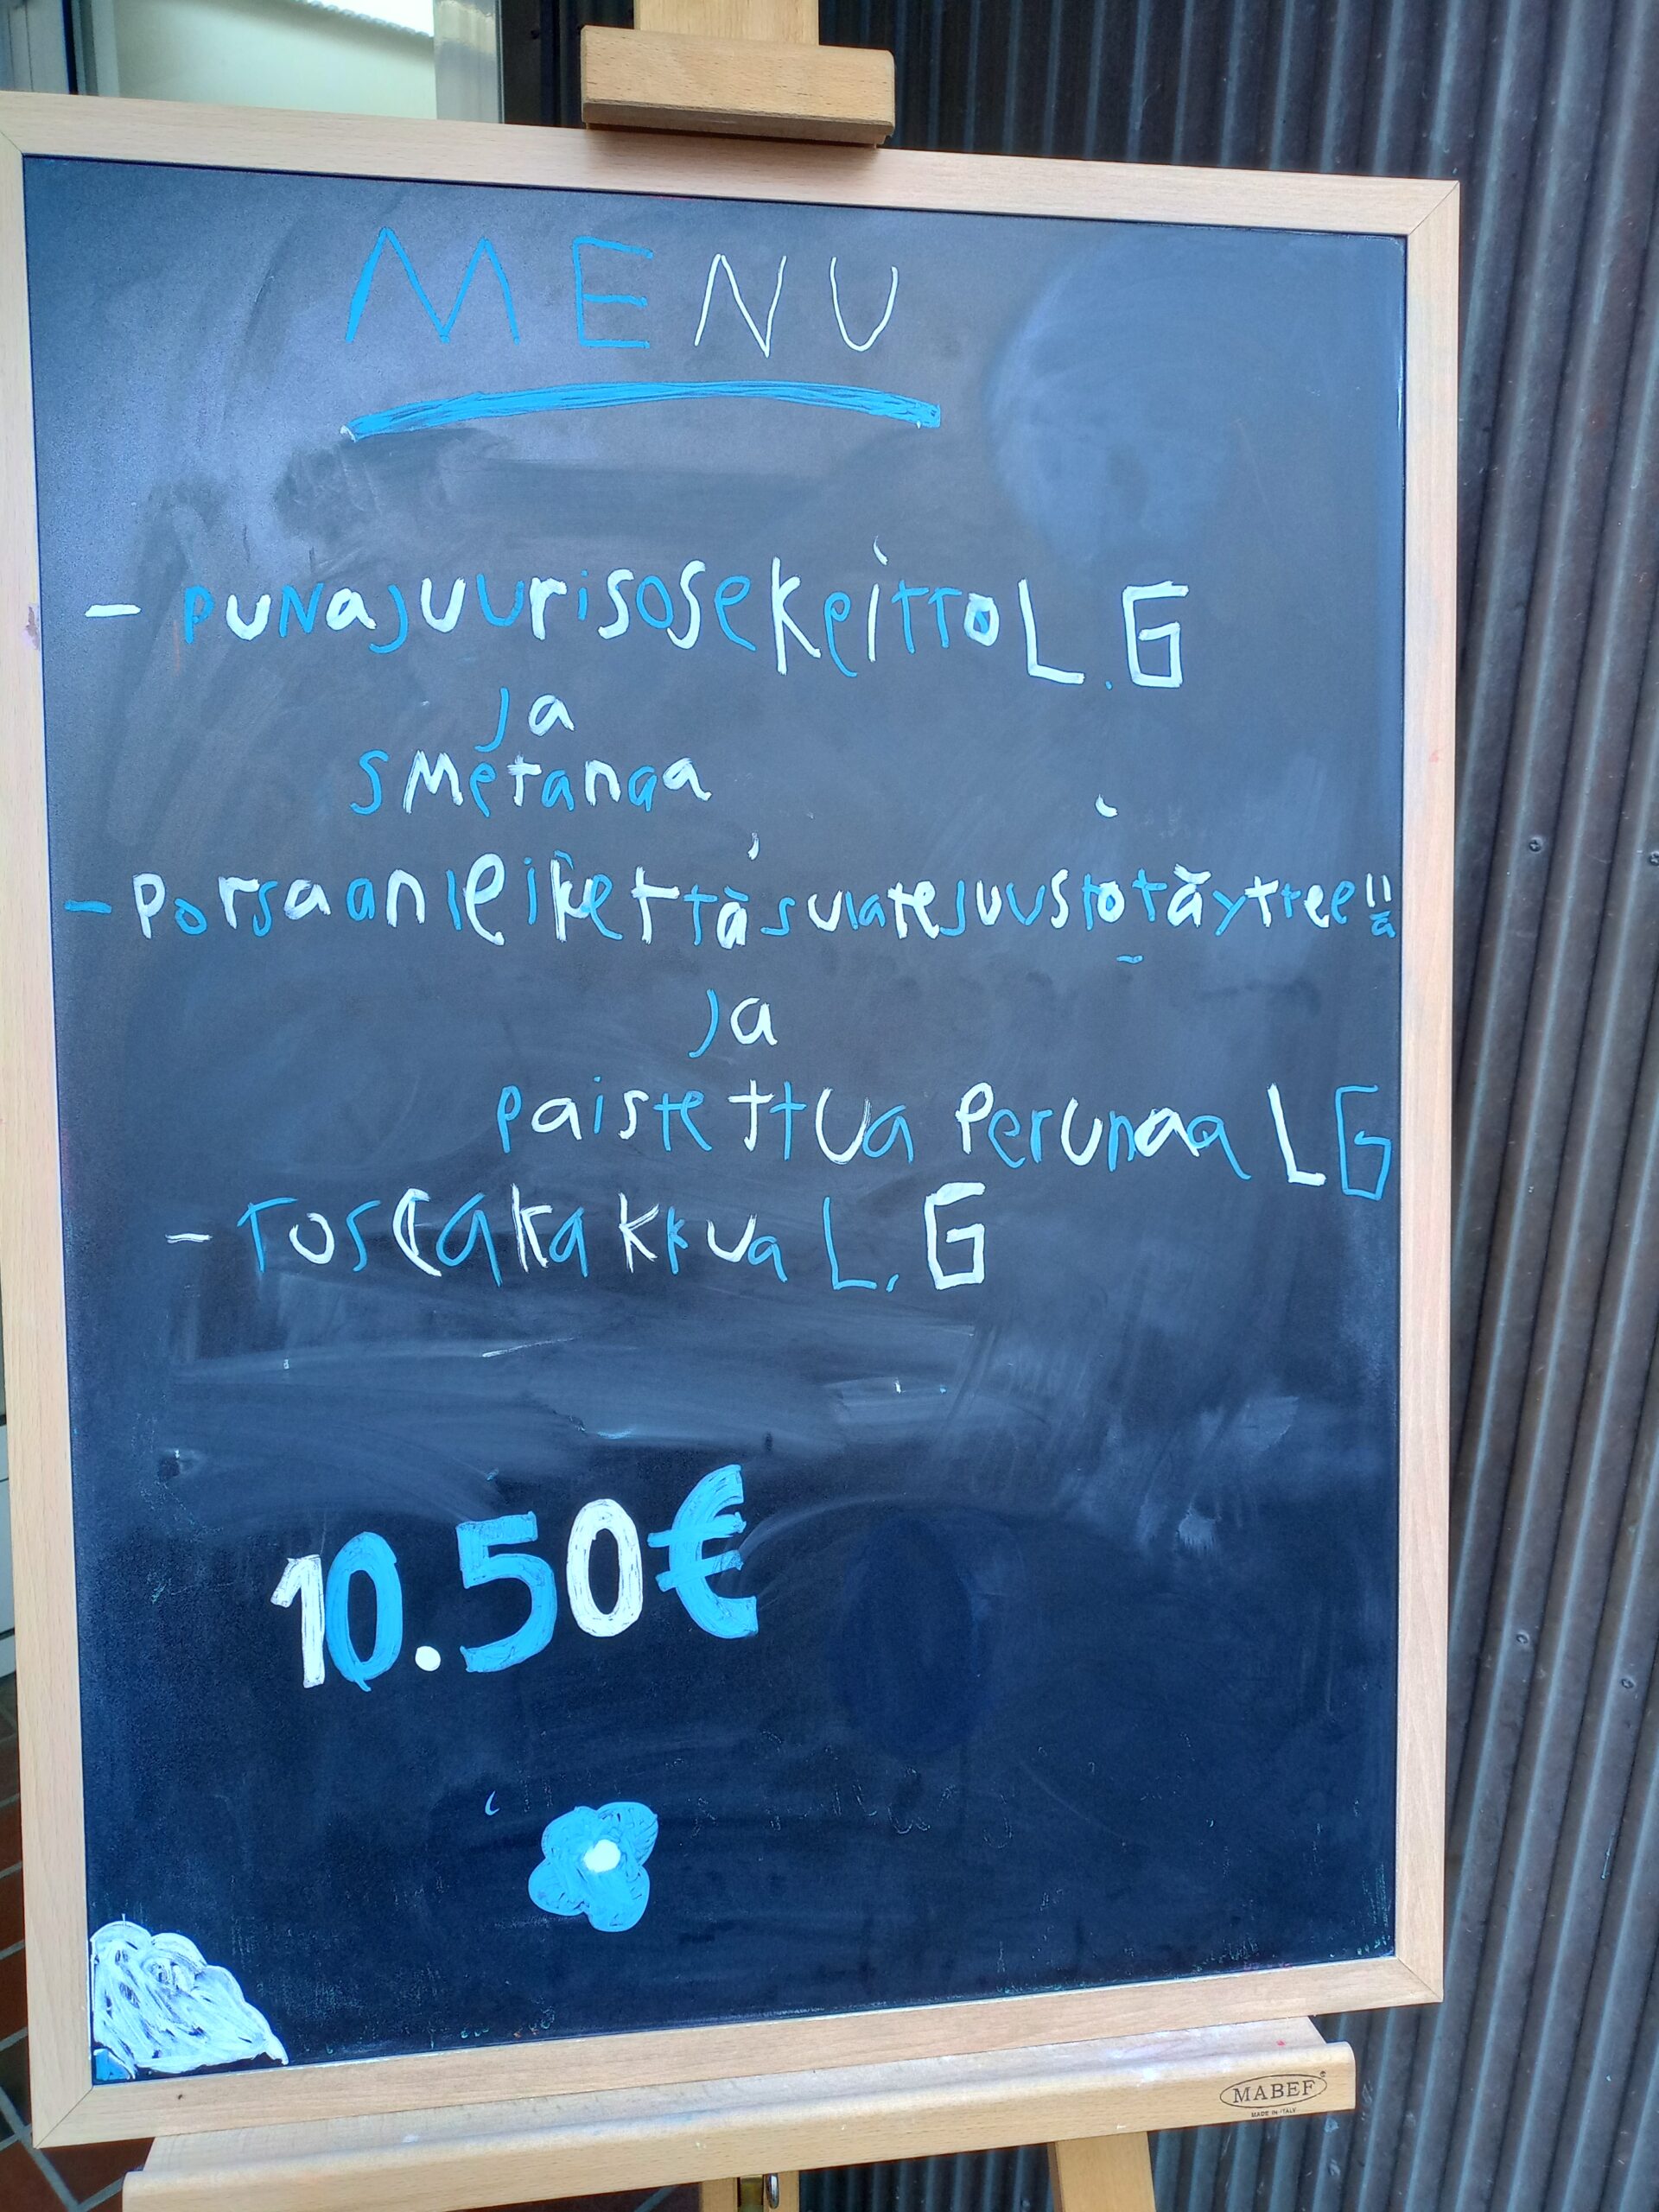 MENU
- PUNAJUURISOSEKEITTO L.G
ja
smetanaa
- Porsaanleikettä sulatejuustotäytteellä
ja
paistettua perunaa L G
- Toscakakkua L, G
10.50€
MABEF
MADE IN ITALY